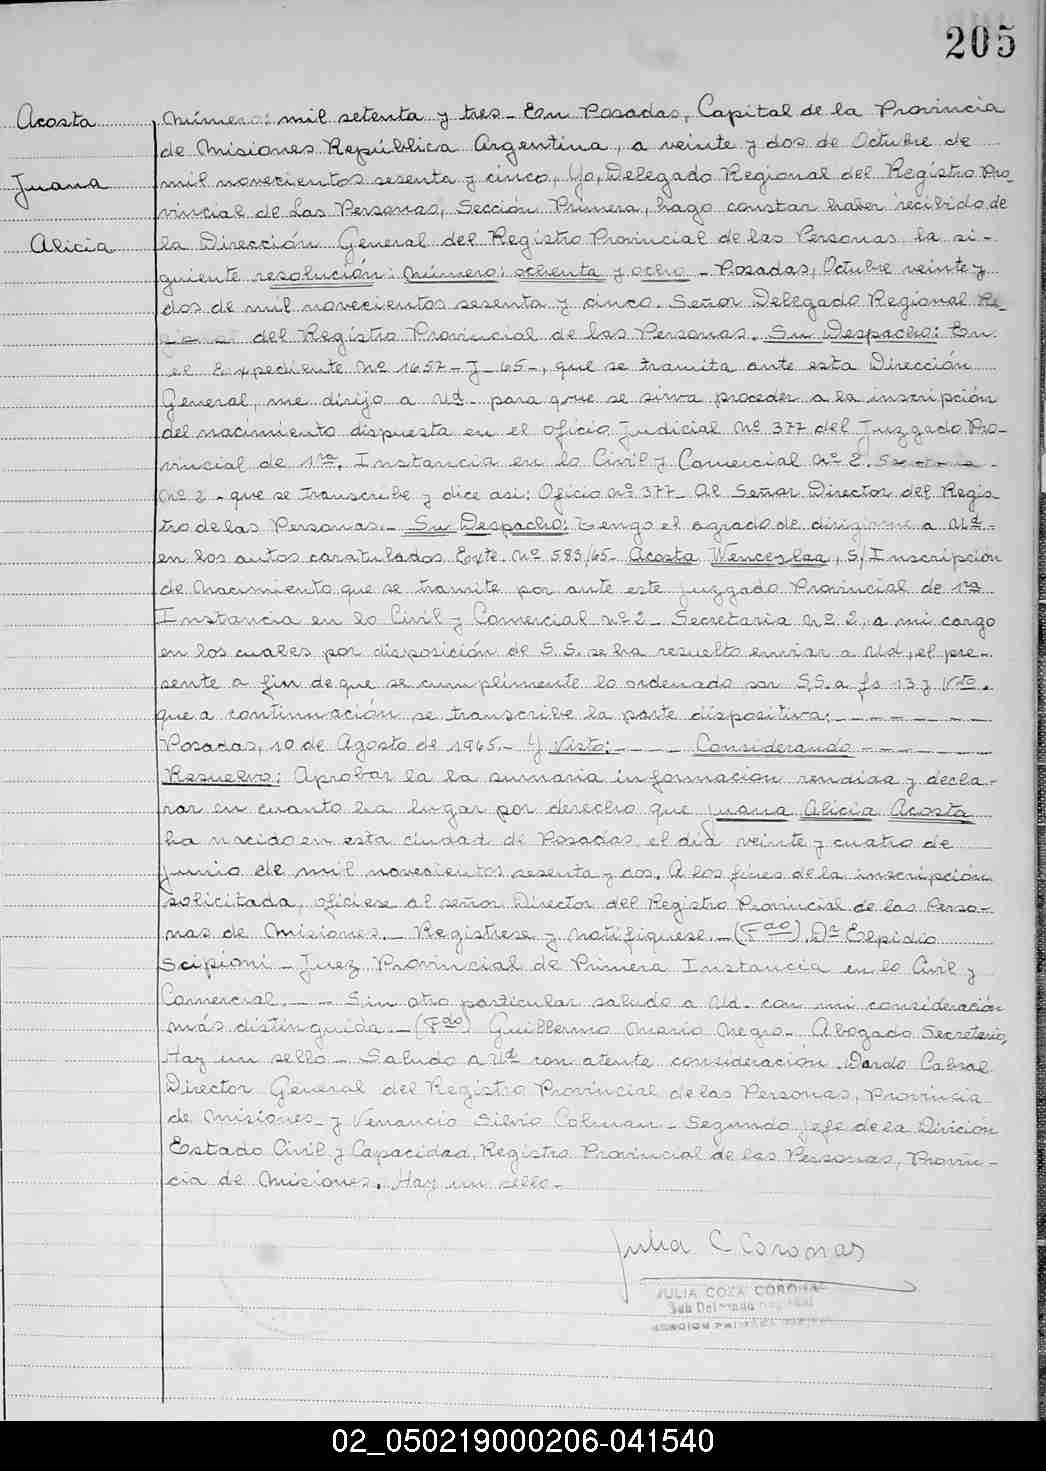 205
Acosta
Juana
Alicia
Número: mil setenta y tres - En Posadas, Capital de la Provincia
de Misiones República Argentina, a veinte y dos de Octubre de
mil novecientos sesenta y cinco, Yo, Delegado Regional del Registro Pro-
vincial de Las Personas, Sección Primera, hago constar haber recibido de
la Dirección General del Registro Provincial de las Personas la si-
guiente resolución: Número: ochenta y ocho - Posadas, Octubre veinte y
dos de mil novecientos sesenta y cinco. Señor Delegado Regional
del Registro Provincial de las Personas. Su Despacho: En
el Expediente Nº 1657-J-65-, que se tramita ante esta Dirección
General, me dirijo a Ud. para que se sirva proceder a la inscripción
del nacimiento dispuesta en el oficio Judicial Nº 377 del Juzgado Pro-
vincial de 1ra. Instancia en lo Civil y Comercial Nº 2.
Nº 2 - que se transcribe y dice asi: Oficio Nº 377- Al Señor Director del Regis
tro de las Personas.- Su Despacho: Tengo el agrado de dirigirme a Ud-
en los autos caratulados Exte. Nº 583/65- Acosta Wenceslaa, S/Inscripción
de Nacimiento que se tramite por ante este Juzgado Provincial de 1ra
Instancia en lo Civil y Comercial Nº 2- Secretaria Nº 2, a mi cargo
en los cuales por disposición de S.S. se ha resuelto enviar a Ud, el pre-
sente a fin de que se cumplimente lo ordenado por S.S. a fs 13 y Vto.
que a continuación se transcribe la parte dispositiva: - - - - - -
Posadas, 10 de Agosto de 1965.- Y Visto: - - - Considerando - - - - - -
Resuelvo: Aprobar la la sumaria información rendida y decla-
rar en cuanto ha lugar por derecho que Juana Alicia Acosta
ha nacido en esta ciudad de Posadas, el día veinte y cuatro de
junio de mil novecientos sesenta y dos. A los fines de la inscripción
solicitada, ofíciese al señor Director del Registro Provincial de las Perso-
nas de Misiones.- Registrese y notifiquese.-(Fdo). Dr Elpidio
Scipioni - Juez Provincial de Primera Instancia en lo Civil y
Comercial. - - Sin otro particular saludo a Ud. con mi consideración
más distinguida.-(Fdo) Guillermo Mario Negro- Abogado Secretario,
Hay un sello - Saludo a Ud con atente consideración. Dardo Cabral
Director General del Registro Provincial de las Personas, Provincia
de Misiones- y Venancio Silvio Colman - Segundo jefe de la División
Estado Civil y Capacidad, Registro Provincial de las Personas, Provin-
cia de Misiones. Hay un sello-
Julia C. Coronas
JULIA COZA CORONAS
02_050219000206-041540